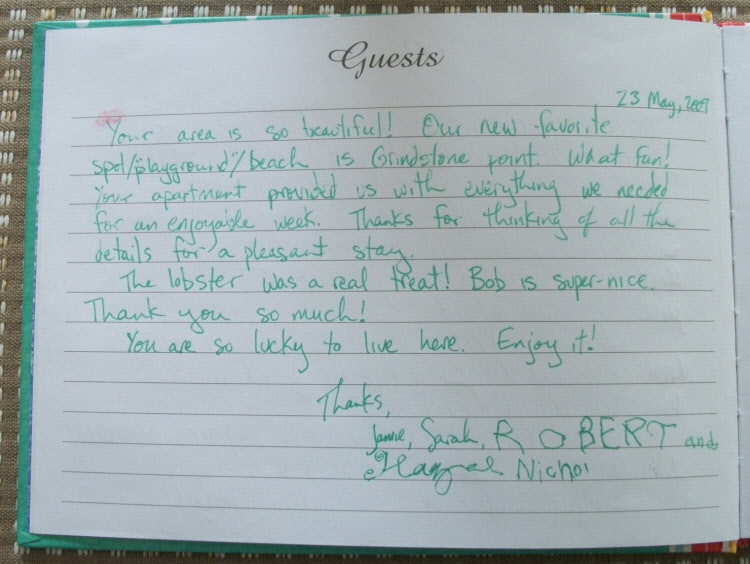 Guests
23 May, 2009
Your area is so beautiful! Our new favorite
spot/"playground"/beach is Grindstone point. What fun!
Your apartment provided us with everything we needed
for an enjoyable week. Thanks for thinking of all the
details for a pleasant stay.
The lobster was a real treat! Bob is super-nice.
Thank you so much!
You are so lucky to live here. Enjoy it!
Thanks,
Jamie, Sarah, ROBERT and
Nichol